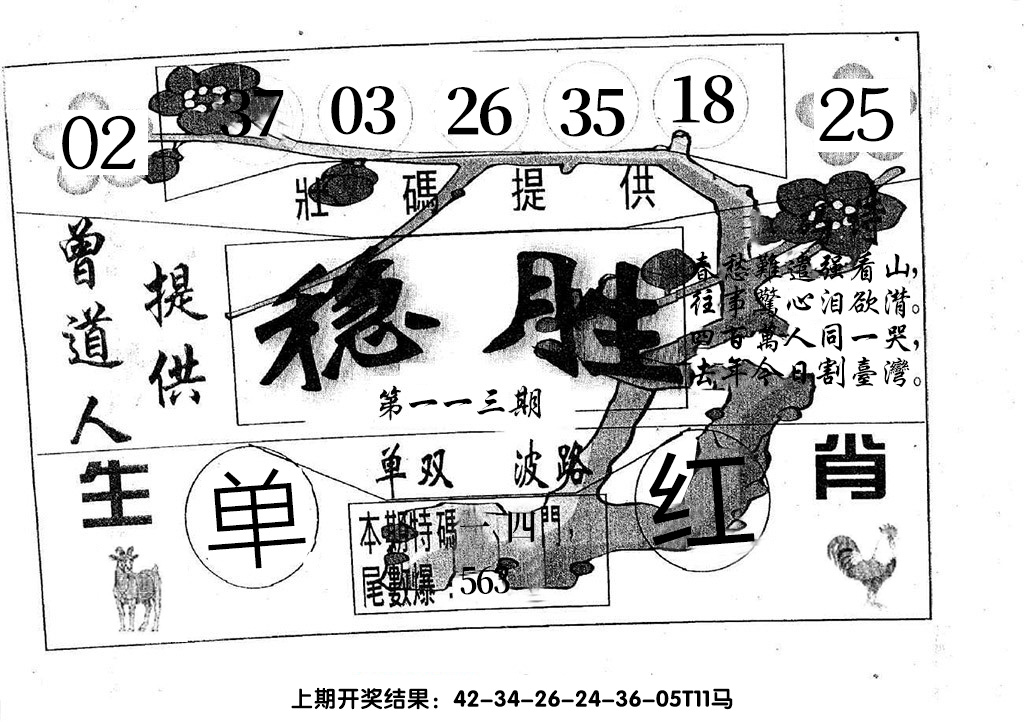 02 37 03 26 35 18 25
壯碼提供
特
曾道人
提供
稳胜
第一一三期
春愁難遣强看山，
往事驚心泪欲潸。
四百萬人同一哭，
去年今日割臺灣。
单双 波路
生肖
单
红
本期特碼一、四門，
尾數爆：563
上期开奖结果：42-34-26-24-36-05T11马